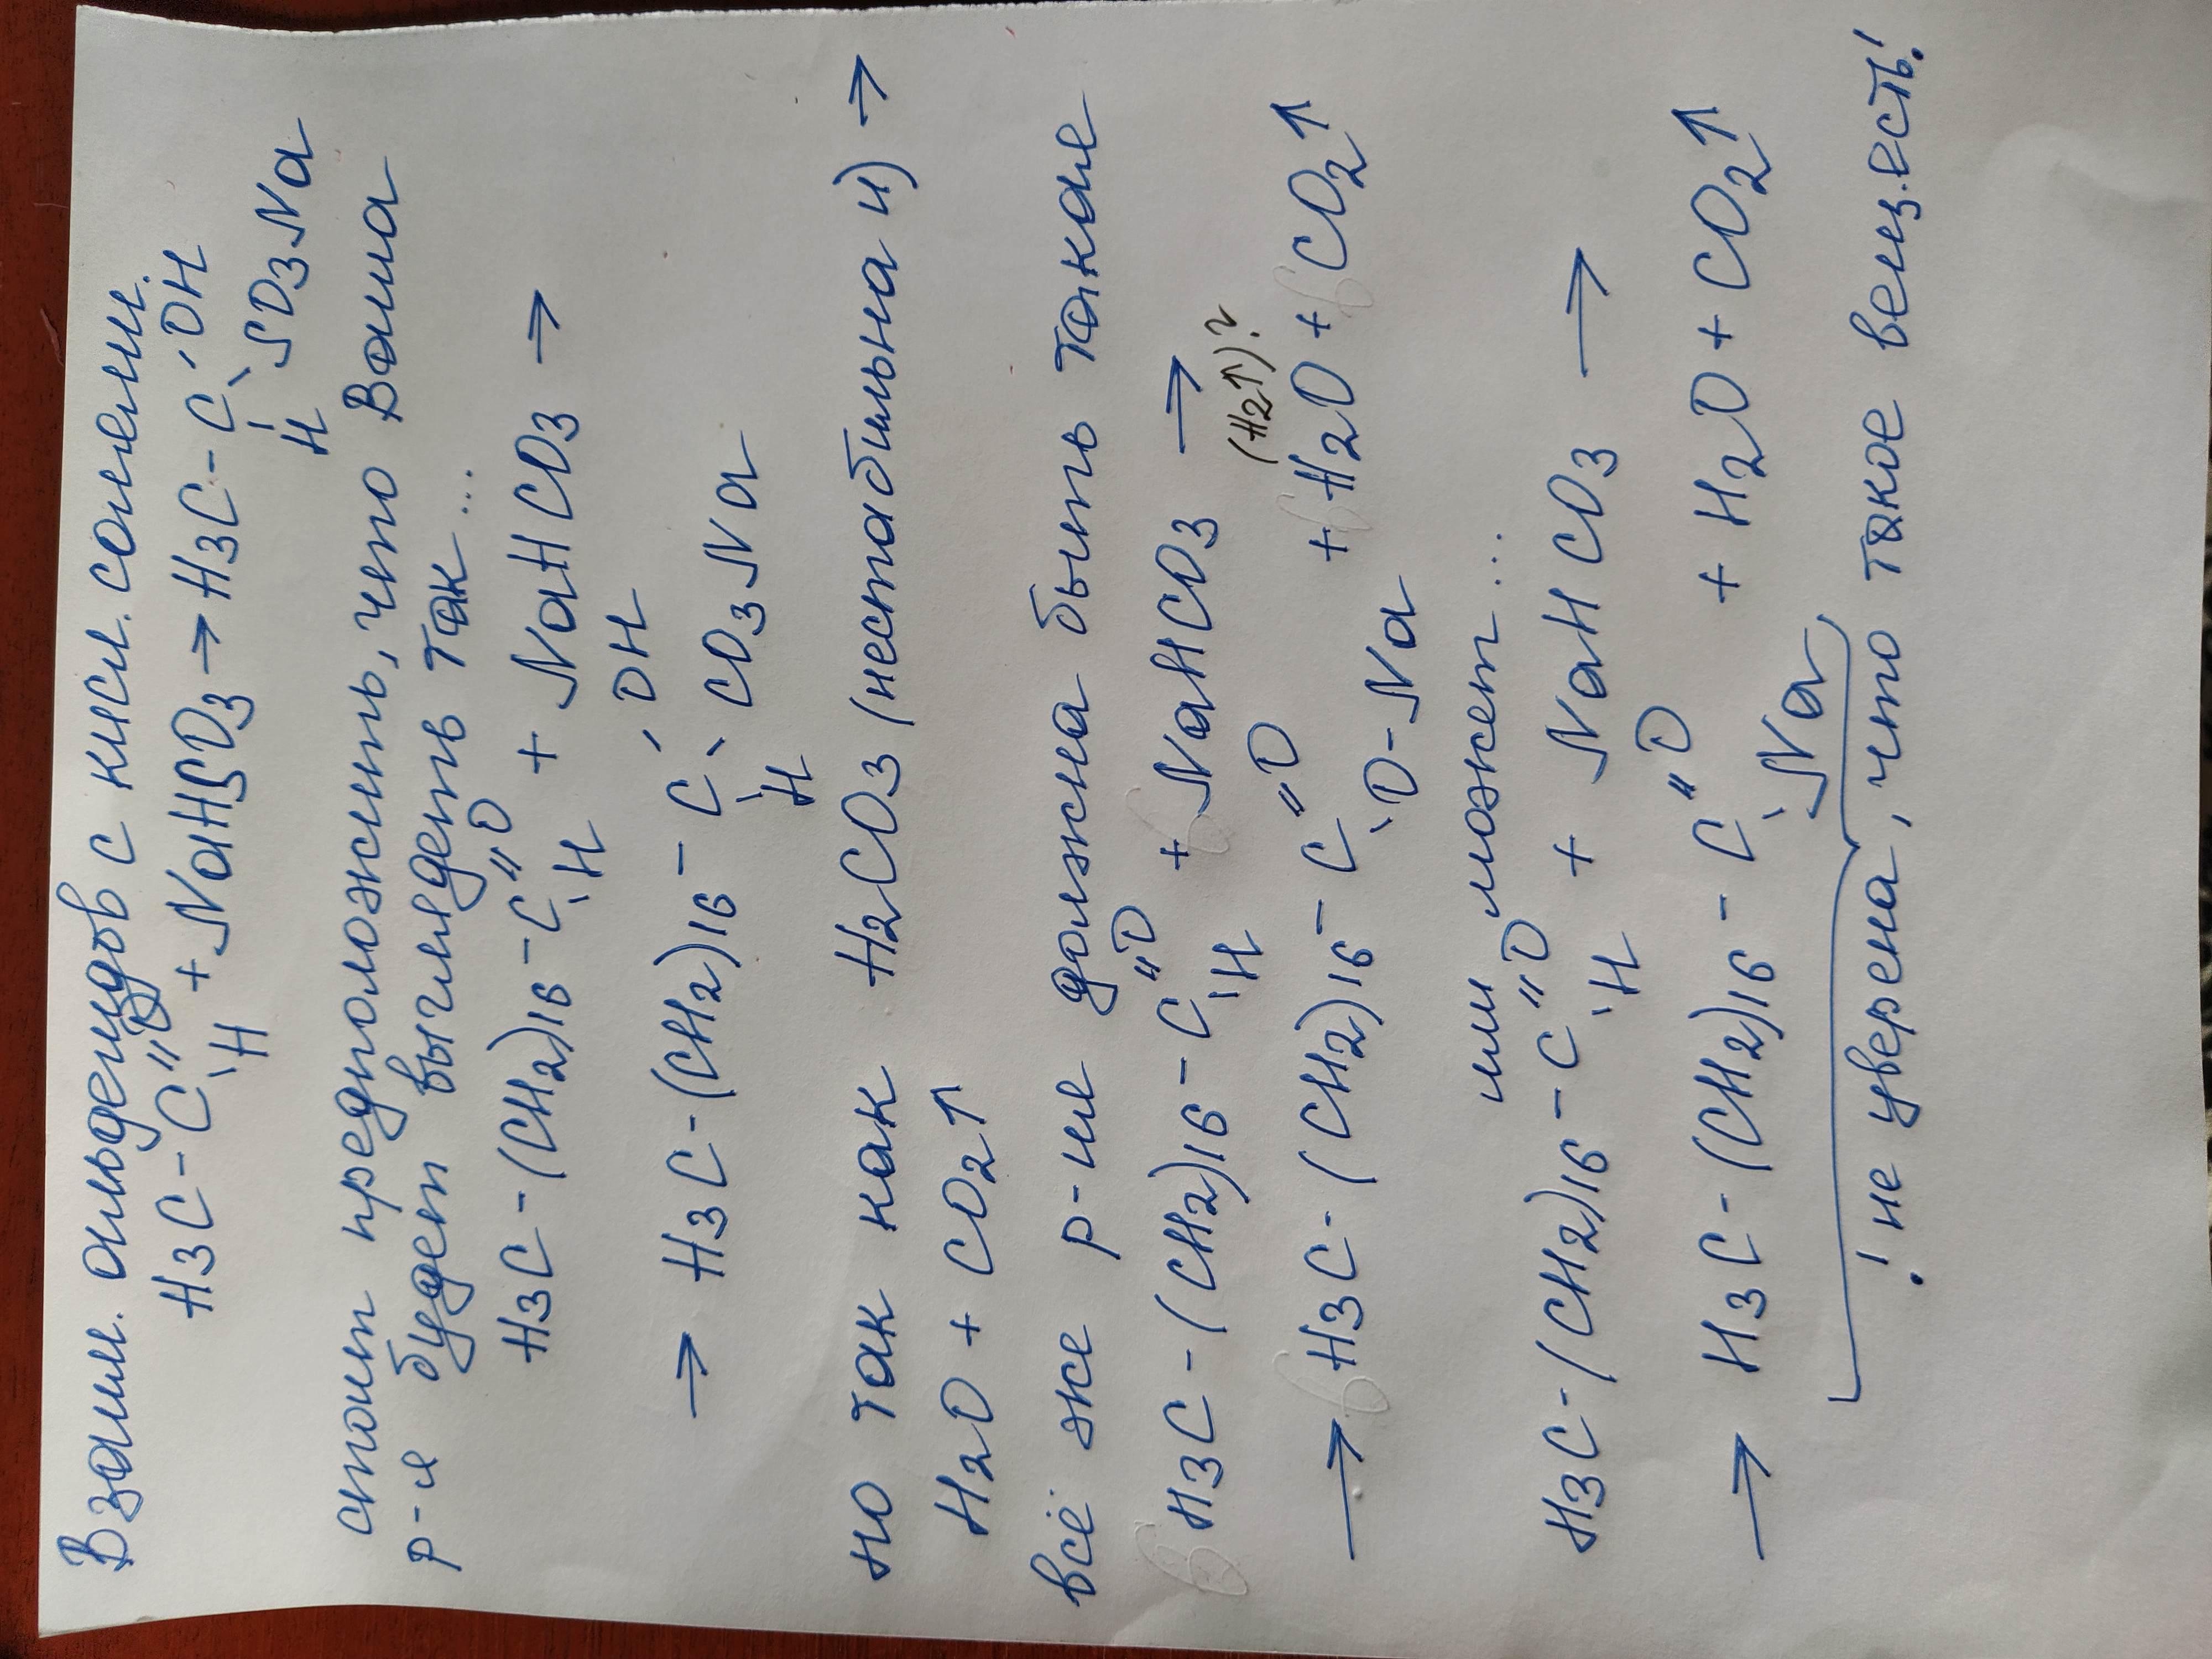 Взаим. альдегидов с кисл. солями.
H3C-C"O + NaHSO3 → H3C-C'OH
H
H SO3Na
стоит предположить, что Ваша
р-я будет выглядеть так...
H3C-(CH2)16-C"O + NaHCO3 →
H
→ H3C-(CH2)16-C'OH
H CO3Na
но так как H2CO3 (нестабильна и) →
H2O + CO2↑
всё же р-ия должна быть такая
H3C-(CH2)16-C"O + NaHCO3 →
H
(H2↑)?
→ H3C-(CH2)16-C"O + H2O + CO2↑
O-Na
или может...
H3C-(CH2)16-C"O + NaHCO3 →
H
→ H3C-(CH2)16-C"O + H2O + CO2↑
Na
! не уверена, что такое вещ. есть!